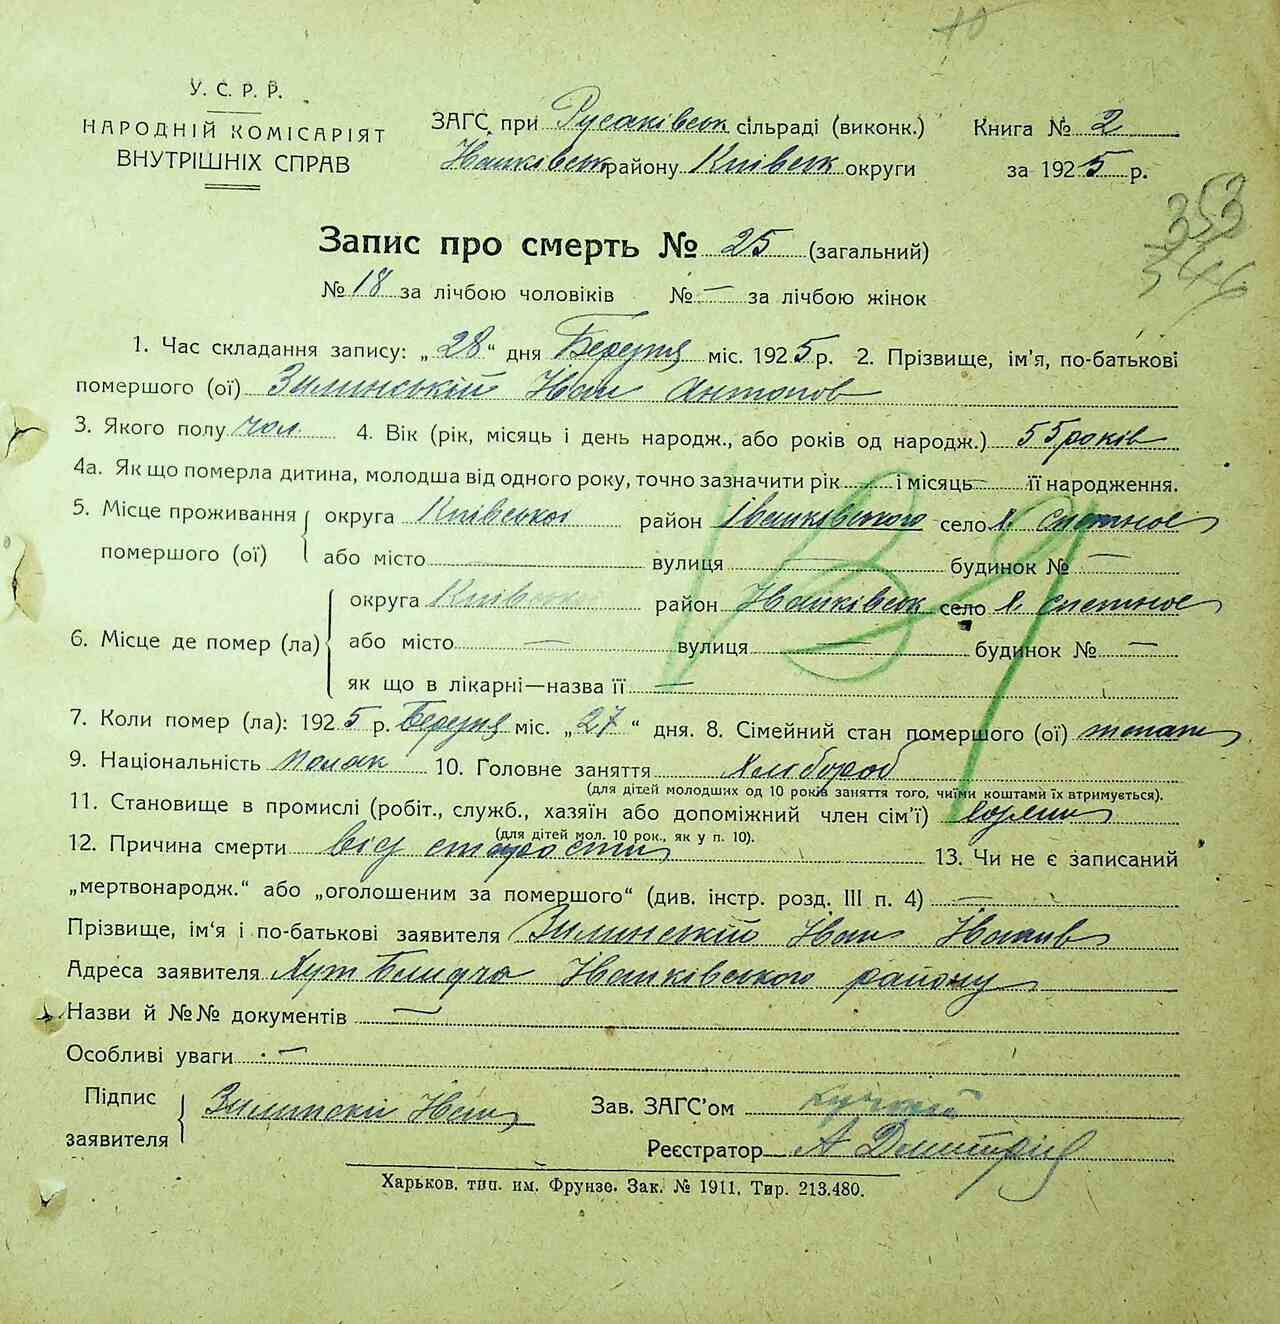 У. С. Р. Р.
НАРОДНІЙ КОМІСАРІЯТ
ВНУТРІШНІХ СПРАВ
ЗАГС при Русаківськ сільраді (виконк.)
Іванківськ району Київськ округи
Книга № 2
за 1925 р.
353
546
Запис про смерть № 25 (загальний)
№ 18 за лічбою чоловіків № — за лічбою жінок
1. Час складання запису: „28“ дня Березня міс. 1925 р. 2. Прізвище, ім'я, по-батькові
помершого (ої) Зилинській Иван Антонов
3. Якого полу чол. 4. Вік (рік, місяць і день народж., або років од народж.) 55 років
4а. Як що померла дитина, молодша від одного року, точно зазначити рік і місяць — її народження.
5. Місце проживання помершого (ої) округа Київської район Іванківського село х.
або місто — вулиця — будинок № —
6. Місце де помер (ла) округа Київськ район Иванківськ село х.
або місто — вулиця — будинок № —
як що в лікарні—назва її —
7. Коли помер (ла): 1925 р. Березня міс. „27“ дня. 8. Сімейний стан помершого (ої)
9. Національність поляк 10. Головне заняття Хлібороб
(для дітей молодших од 10 років заняття того, чиїми коштами їх втримується).
11. Становище в промислі (робіт., служб., хазяїн або допоміжний член сім'ї)
(для дітей мол. 10 рок., як у п. 10).
12. Причина смерти від старости 13. Чи не є записаний
„мертвонародж.“ або „оголошеним за помершого“ (див. інстр. розд. III п. 4) —
Прізвище, ім'я і по-батькові заявителя Зилинській Иван Иванів
Адреса заявителя Хут Блидча Иванківського району
Назви й №№ документів —
Особливі уваги —
Підпис заявителя Зилинский Иван
Зав. ЗАГС'ом
Реєстратор А Дмитрів
Харьков, тип. им. Фрунзе. Зак. № 1911. Тир. 213.480.